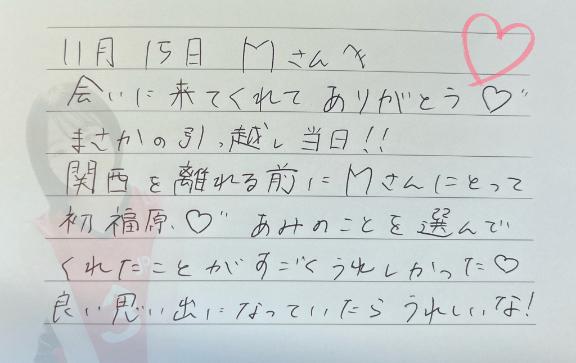 11月 15日 Mさんへ
会いに来てくれて ありがとう♡"
まさかの引っ越し当日!!
関西を離れる前にMさんにとって
初福原♡" あみのことを選んで
くれたことがすごくうれしかった♡
良い思い出になっていたら うれしいな!